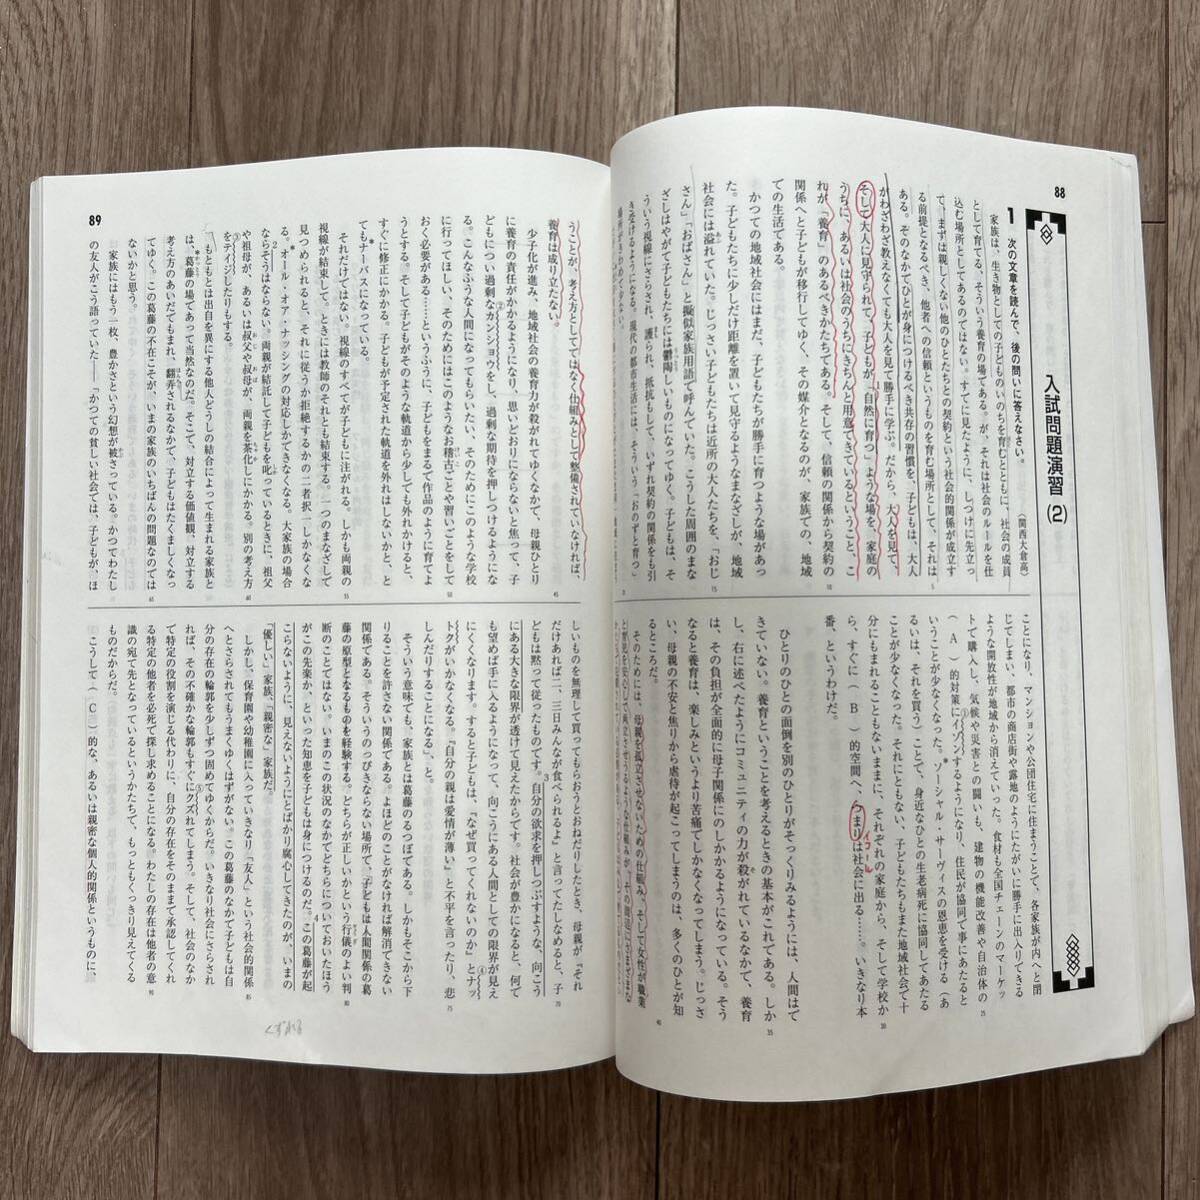 88
入試問題演習(2)
1 次の文章を読んで、後の問いに答えなさい。
(関西大倉高)
家族は、生き物としての子どものいのちを育むとともに、社会の成員
として育てる、そういう養育の場である。が、それは社会のルールを仕
込む場所としてあるのではない。すでに見たように、しつけに先立っ
て、まずは親しくない他のひとたちとの契約という社会的関係が成立す
る前提となるべき、他者への信頼というものを育む場所として、それは
ある。そのなかでひとが身につけるべき共存の習慣を、子どもは、大人
がわざわざ教えなくても大人を見て勝手に学ぶ。だから、大人を見て、
そして大人に見守られて、子どもが「自然に育つ」ような場を、家庭の
うちに、あるいは社会のうちにきちんと用意できているということ、こ
れが「養育」のあるべきかたちである。そして、信頼の関係から契約の
関係へと子どもが移行してゆく、その媒介となるのが、家族での、地域
での生活である。
かつての地域社会にはまだ、子どもたちが勝手に育つような場があっ
た。子どもたちに少しだけ距離を置いて見守るようなまなざしが、地域
社会には溢れていた。じっさい子どもたちは近所の大人たちを、「おじ
さん」「おばさん」と擬似家族用語で呼んでいた。こうした周囲のまな
ざしはやがて子どもたちには鬱陶しいものになってゆく。子どもは、そ
ういう視線にさらされ、護られ、抵抗もして、いずれ契約の関係をも引
き受けるようになる。現代の都市生活には、そういう「おのずと育つ」
場所がきわめて少ない。
ことになり、マンションや公団住宅に住まうことで、各家族が内へと閉
じてしまい、都市の商店街や露地のようにたがいに勝手に出入りできる
ような開放性が地域から消えていった。食材も全国チェーンのマーケッ
トで購入し、気候や災害との闘いも、建物の機能改善や自治体の
( A )的対策に①イゾンするようになり、住民が協同で事にあたると
いうことが少なくなった。*ソーシャル・サーヴィスの恩恵を受ける(あ
るいは、それを買う)ことで、身近なひとの生老病死に協同してあたる
ことが少なくなった。それにともない、子どもたちもまた地域社会で十
分にもまれることもないままに、それぞれの家庭から、そして学校か
ら、すぐに( B )的空間へ、つまりは社会に出る……。いきなり本
番、というわけだ。
イコール
ひとりのひとの面倒を別のひとりがそっくりみるようには、人間はで
きていない。養育ということを考えるときの基本がこれである。しか
し、右に述べたようにコミュニティの力が殺がれているなかで、養育
は、その負担が全面的に母子関係にのしかかるようになっている。そう
なると養育は、楽しみというより苦痛でしかなくなってしまう。じっさ
い、母親の不安と焦りから虐待が起こってしまうのは、多くのひとが知
るところだ。
そのためには、母親を孤立させないための仕組み、そして女性が職業
89
うことが、考え方としてではなく仕組みとして整備されていなければ、
養育は成り立たない。
少子化が進み、地域社会の養育力が殺がれてゆくなかで、母親ひとり
に養育の責任がかかるようになり、思いどおりにならないと焦って、子
どもについ過剰な②カンショウをし、過剰な期待を押しつけるようにな
る。こんなふうな人間になってもらいたい、そのためにこのような学校
に行ってほしい、そのためにはこのようなお稽古ごとや習いごとをして
おく必要がある……というふうに、子どもをまるで作品のように育てよ
うとする。そして子どもがそのような軌道から少しでも外れかけると、
すぐに修正にかかる。子どもが予定された軌道を外れはしないかと、と
ても*ナーバスになっている。
それだけではない。視線のすべてが子どもに注がれる。しかも両親の
視線が結束して。ときには教師のそれとも結束する。一つのまなざしで
見つめられると、それに従うか拒絶するかの二者択一しかなくな
る。*オール・オア・ナッシングの対応しかできなくなる。大家族の場合
2
ならそうはならない。両親が結託して子どもを叱っているときに、祖父
や祖母が、あるいは叔父や叔母が、両親を茶化しにかかる。別の考え方
を③テイジしたりもする。
もともとは出自を異にする他人どうしの結合によって生まれる家族と
は、*葛藤の場であって当然なのだ。そこで、対立する価値観、対立する
考え方のあいだでもまれ、翻弄されるなかで、子どもはたくましくなっ
てゆく。この葛藤の不在こそが、いまの家族のいちばんの問題なのでは
ないかと思う。
家族にはもう一枚、豊かさという幻想が被さっている。かつてわたし
の友人がこう語っていた——「かつての貧しい社会では、子どもが、ほ
しいものを無理して買ってもらおうとおねだりしたとき、母親が『それ
だけあれば二、三日みんなが食べられるよ』と言ってたしなめると、子
どもは黙って従ったものです。自分の欲求を押しつぶすような、向こう
3
にある大きな限界が透けて見えたからです。社会が豊かになると、何で
も望めば手に入るようになって、向こうにある人間としての限界が見え
なくなります。すると子どもは、『なぜ買ってくれないのか』と④ナッ
トクがいかなくなる。『自分の親は愛情が薄い』と不平を言ったり、悲
しんだりすることになる」、と。
そういう意味でも、家族とは葛藤のるつぼである。しかもそこから下
りることを許さない関係である。よほどのことがなければ解消できない
関係である。そういうのっぴきならない場所で、子どもは人間関係の葛
藤の原型となるものを経験する。どちらが正しいかという行儀のよい判
断のことではない。いまのこの状況のなかでどちらについておいたほう
がこの先楽か、といった知恵を子どもは身につけるのだ。この葛藤が起
4
こらないように、見えないようにとばかり腐心してきたのが、いまの
「優しい」家族、「親密な」家族だ。
しかし、保育園や幼稚園に入っていきなり「友人」という社会的関係
へとさらされてもうまくゆくはずがない。この葛藤のなかで子どもは自
分の存在の輪郭を少しずつ固めてゆくからだ。いきなり社会にさらされ
れば、その不確かな輪郭もすぐに⑤クズれてしまう。そして、社会のなか
で特定の役割を演じる代わりに、自分の存在をそのままで承認してくれ
る特定の他者を必死で探し求めることになる。わたしの存在は他者の意
識の宛て先となっているというかたちで、もっともくっきり見えてくる
ものだからだ。
こうして( C )的な、あるいは親密な個人的関係というものに、
くずれる